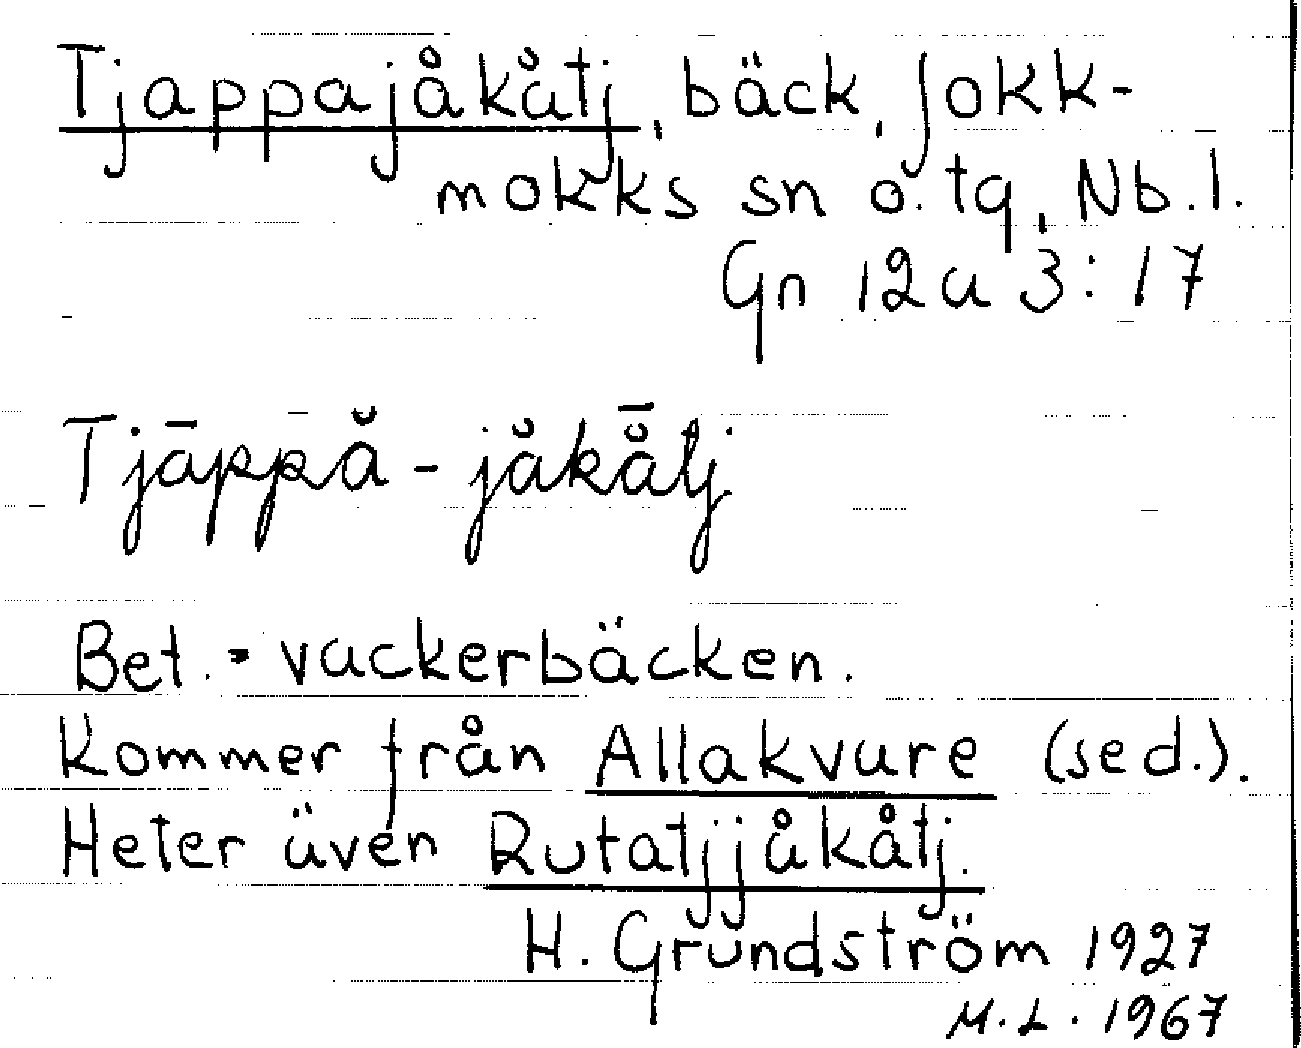 Tjappajåkåtj, bäck, Jokk-
mokks sn o. tg, Nb. l.
Gn 12 a 3:17
Tjāppå̆ - jåkå̄tj
Bet. = vackerbäcken.
Kommer från Allakvure (sed.).
Heter även Rutatjjåkåtj.
H. Grundström 1927
M.L. 1967